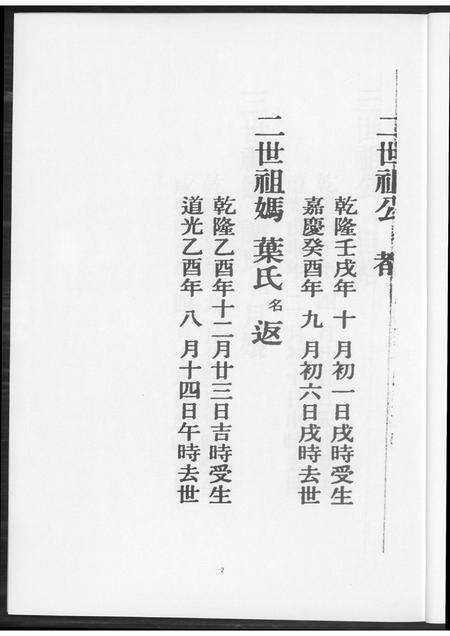 二世祖公 都
乾隆壬戌年 十 月初一日戌時受生
嘉慶癸酉年 九 月初六日戌時去世
二世祖媽 葉氏 名 返
乾隆乙酉年十二月廿三日吉時受生
道光乙酉年 八 月十四日午時去世
2